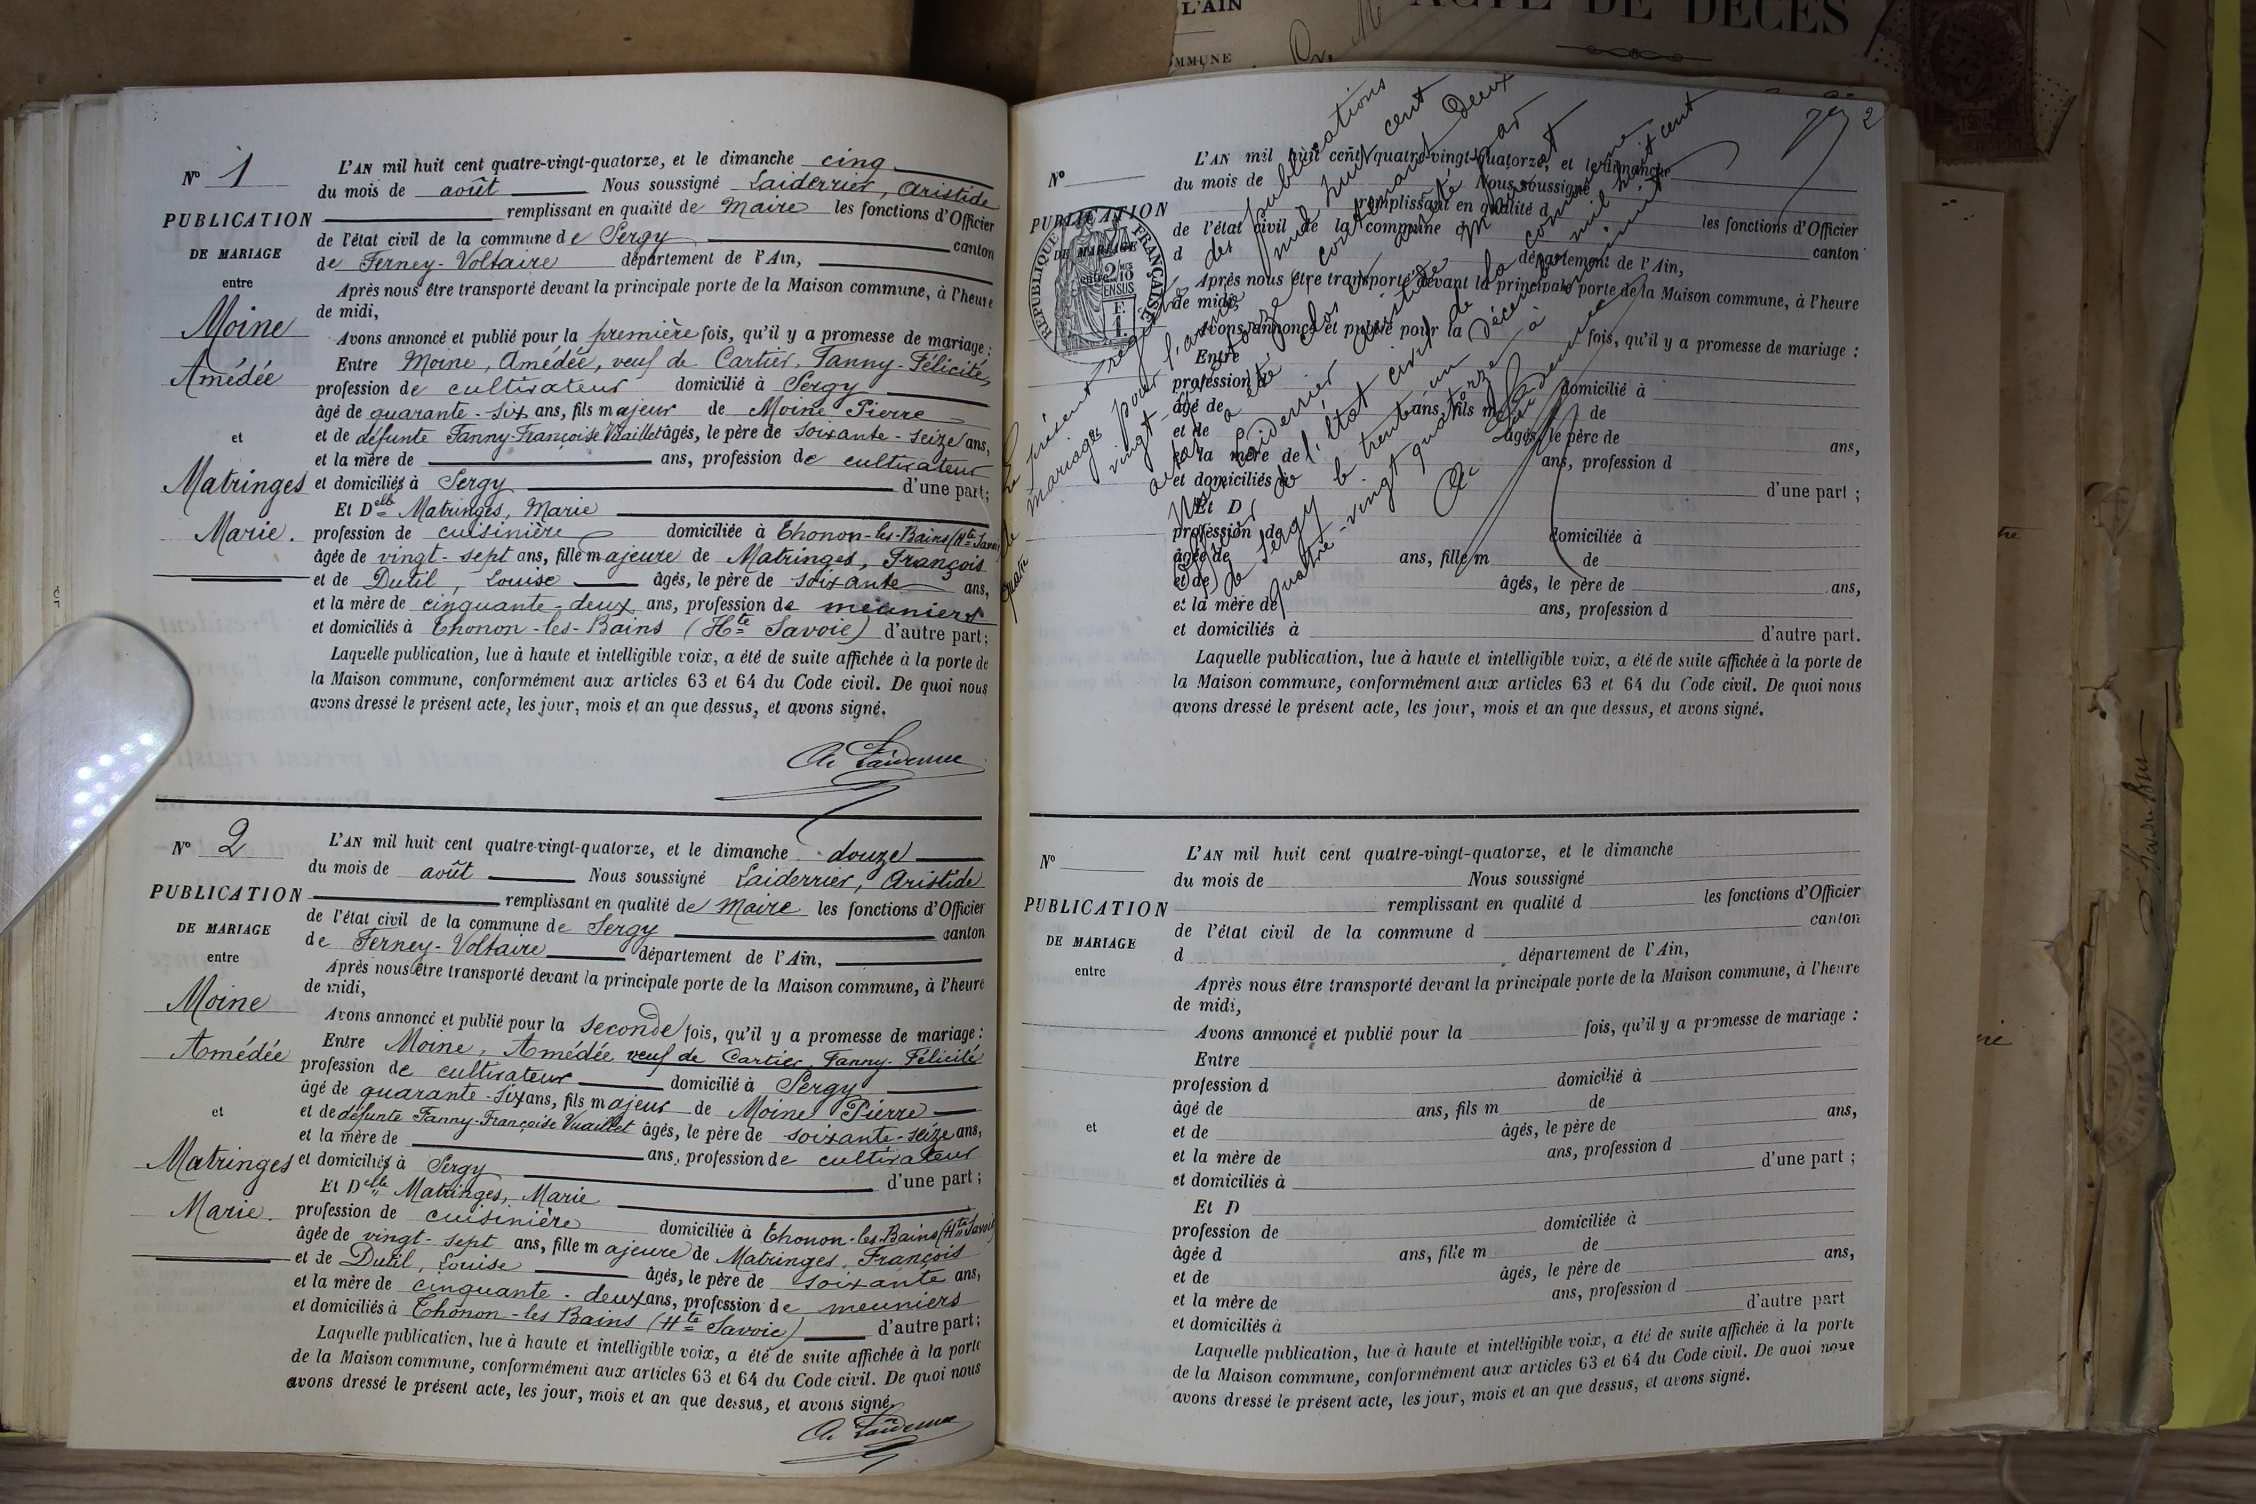 L'AIN
ACTE DE DÉCÈS
COMMUNE
N° 1
PUBLICATION
DE MARIAGE
entre
Moine
Amédée
et
Matringes
Marie.
L'AN mil huit cent quatre-vingt-quatorze, et le dimanche cinq
du mois de août Nous soussigné Laiderrier, Aristide
remplissant en qualité de Maire les fonctions d'Officier
de l'état civil de la commune de Sergy canton
de Ferney-Voltaire département de l'Ain,
Après nous être transporté devant la principale porte de la Maison commune, à l'heure
de midi,
Avons annoncé et publié pour la première fois, qu'il y a promesse de mariage :
Entre Moine, Amédée, veuf de Cartier, Fanny-Félicité,
profession de cultivateur domicilié à Sergy
âgé de quarante-six ans, fils majeur de Moine Pierre
et de défunte Fanny-Françoise Vuaillet âgés, le père de soixante-seize ans,
et la mère de ans, profession de cultivateur
et domiciliés à Sergy d'une part ;
Et Delle Matringes, Marie
profession de cuisinière domiciliée à Thonon-les-Bains (Hte Savoie)
âgée de vingt-sept ans, fille majeure de Matringes, François
et de Dutil, Louise âgés, le père de soixante ans,
et la mère de cinquante-deux ans, profession de meuniers
et domiciliés à Thonon-les-Bains (Hte Savoie) d'autre part ;
Laquelle publication, lue à haute et intelligible voix, a été de suite affichée à la porte de
la Maison commune, conformément aux articles 63 et 64 du Code civil. De quoi nous
avons dressé le présent acte, les jour, mois et an que dessus, et avons signé.
A. Laiderrier
N° 2
PUBLICATION
DE MARIAGE
entre
Moine
Amédée
et
Matringes
Marie.
L'AN mil huit cent quatre-vingt-quatorze, et le dimanche douze
du mois de août Nous soussigné Laiderrier, Aristide
remplissant en qualité de Maire les fonctions d'Officier
de l'état civil de la commune de Sergy canton
de Ferney-Voltaire département de l'Ain,
Après nous être transporté devant la principale porte de la Maison commune, à l'heure
de midi,
Avons annoncé et publié pour la seconde fois, qu'il y a promesse de mariage :
Entre Moine, Amédée veuf de Cartier, Fanny-Félicité
profession de cultivateur domicilié à Sergy
âgé de quarante-six ans, fils majeur de Moine Pierre
et de défunte Fanny-Françoise Vuaillet âgés, le père de soixante-seize ans,
et la mère de ans, profession de cultivateur
et domiciliés à Sergy d'une part ;
Et Delle Matringes, Marie
profession de cuisinière domiciliée à Thonon-les-Bains (Hte Savoie)
âgée de vingt-sept ans, fille majeure de Matringes, François
et de Dutil, Louise âgés, le père de soixante ans,
et la mère de cinquante-deux ans, profession de meuniers
et domiciliés à Thonon-les Bains (Hte Savoie) d'autre part ;
Laquelle publication, lue à haute et intelligible voix, a été de suite affichée à la porte
de la Maison commune, conformément aux articles 63 et 64 du Code civil. De quoi nous
avons dressé le présent acte, les jour, mois et an que dessus, et avons signé.
A. Laiderrier
2
N°
PUBLICATION
DE MARIAGE
entre
RÉPUBLIQUE FRANÇAISE
L'AN mil huit cent quatre-vingt-quatorze, et le dimanche
du mois de Nous soussigné
remplissant en qualité d les fonctions d'Officier
de l'état civil de la commune d canton
d département de l'Ain,
Après nous être transporté devant la principale porte de la Maison commune, à l'heure
de midi,
Avons annoncé et publié pour la fois, qu'il y a promesse de mariage :
Entre
profession d domicilié à
âgé de ans, fils m de
et de âgés, le père de ans,
et la mère de ans, profession d
et domiciliés à d'une part ;
Et D
profession de domiciliée à
âgée de ans, fille m de
et de âgés, le père de ans,
et la mère de ans, profession d
et domiciliés à d'autre part.
Laquelle publication, lue à haute et intelligible voix, a été de suite affichée à la porte de
la Maison commune, conformément aux articles 63 et 64 du Code civil. De quoi nous
avons dressé le présent acte, les jour, mois et an que dessus, et avons signé.
Le présent registre des publications
de mariages pour l'année mil huit cent
quatre vingt-quatorze contenant deux
actes a été clos et arrêté par
Nous Laiderrier Aristide Maire et
officier de l'état civil de la commune
de Sergy le trente un Décembre mil huit cent
quatre-vingt quatorze à
A. Laiderrier
N°
PUBLICATION
DE MARIAGE
entre
et
L'AN mil huit cent quatre-vingt-quatorze, et le dimanche
du mois de Nous soussigné
remplissant en qualité d les fonctions d'Officier
de l'état civil de la commune d canton
d département de l'Ain,
Après nous être transporté devant la principale porte de la Maison commune, à l'heure
de midi,
Avons annoncé et publié pour la fois, qu'il y a promesse de mariage :
Entre
profession d domicilié à
âgé de ans, fils m de
et de âgés, le père de ans,
et la mère de ans, profession d
et domiciliés à d'une part ;
Et D
profession de domiciliée à
âgée d ans, fille m de
et de âgés, le père de ans,
et la mère de ans, profession d
et domiciliés à d'autre part
Laquelle publication, lue à haute et intelligible voix, a été de suite affichée à la porte
de la Maison commune, conformément aux articles 63 et 64 du Code civil. De quoi nous
avons dressé le présent acte, les jour, mois et an que dessus, et avons signé.